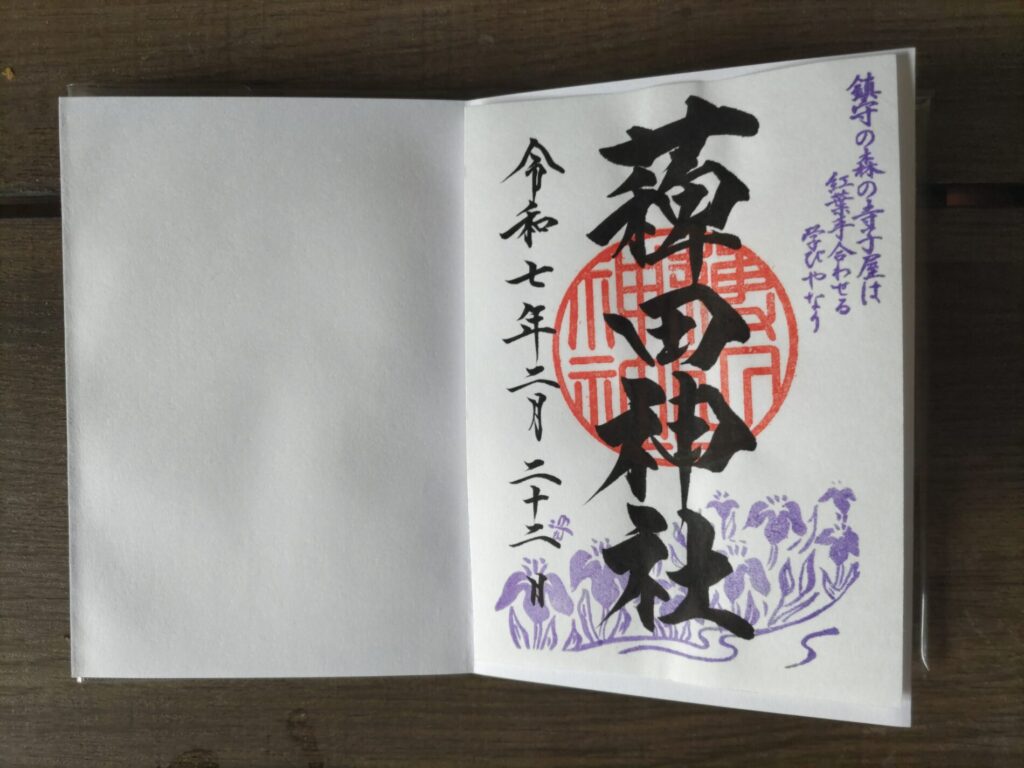 鎮守の森の寺子屋は
紅葉手合わせる
学びやなり
薭田神社
令和七年二月二十二日